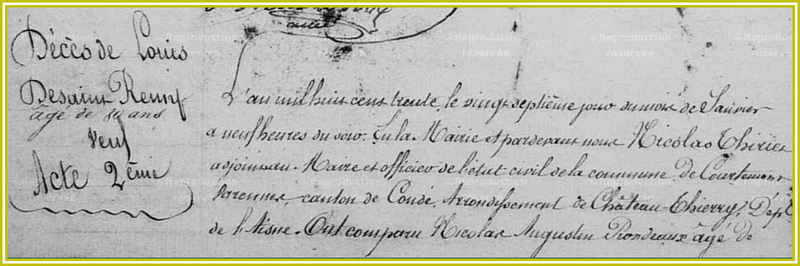 Décès de Louis
Desaint Remy
age de 80 ans
veuf
Acte 2ème
L'an mil huit cent trente, le vingt septième jour du mois de Janvier
a neuf heures du soir. En la Mairie et pardevant nous Nicolas Thirier
adjoint au Maire et officier de l'état civil de la commune de Courtemont
Varennes, canton de Condé, Arrondissement de Château-Thierry, Dépt
de l'Aisne. Ont comparu Nicolas Augustin Rondeaux âgé de